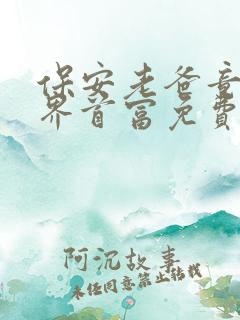 保安老爸竟
界首富免费
阿沉故事
未经同意禁止转载